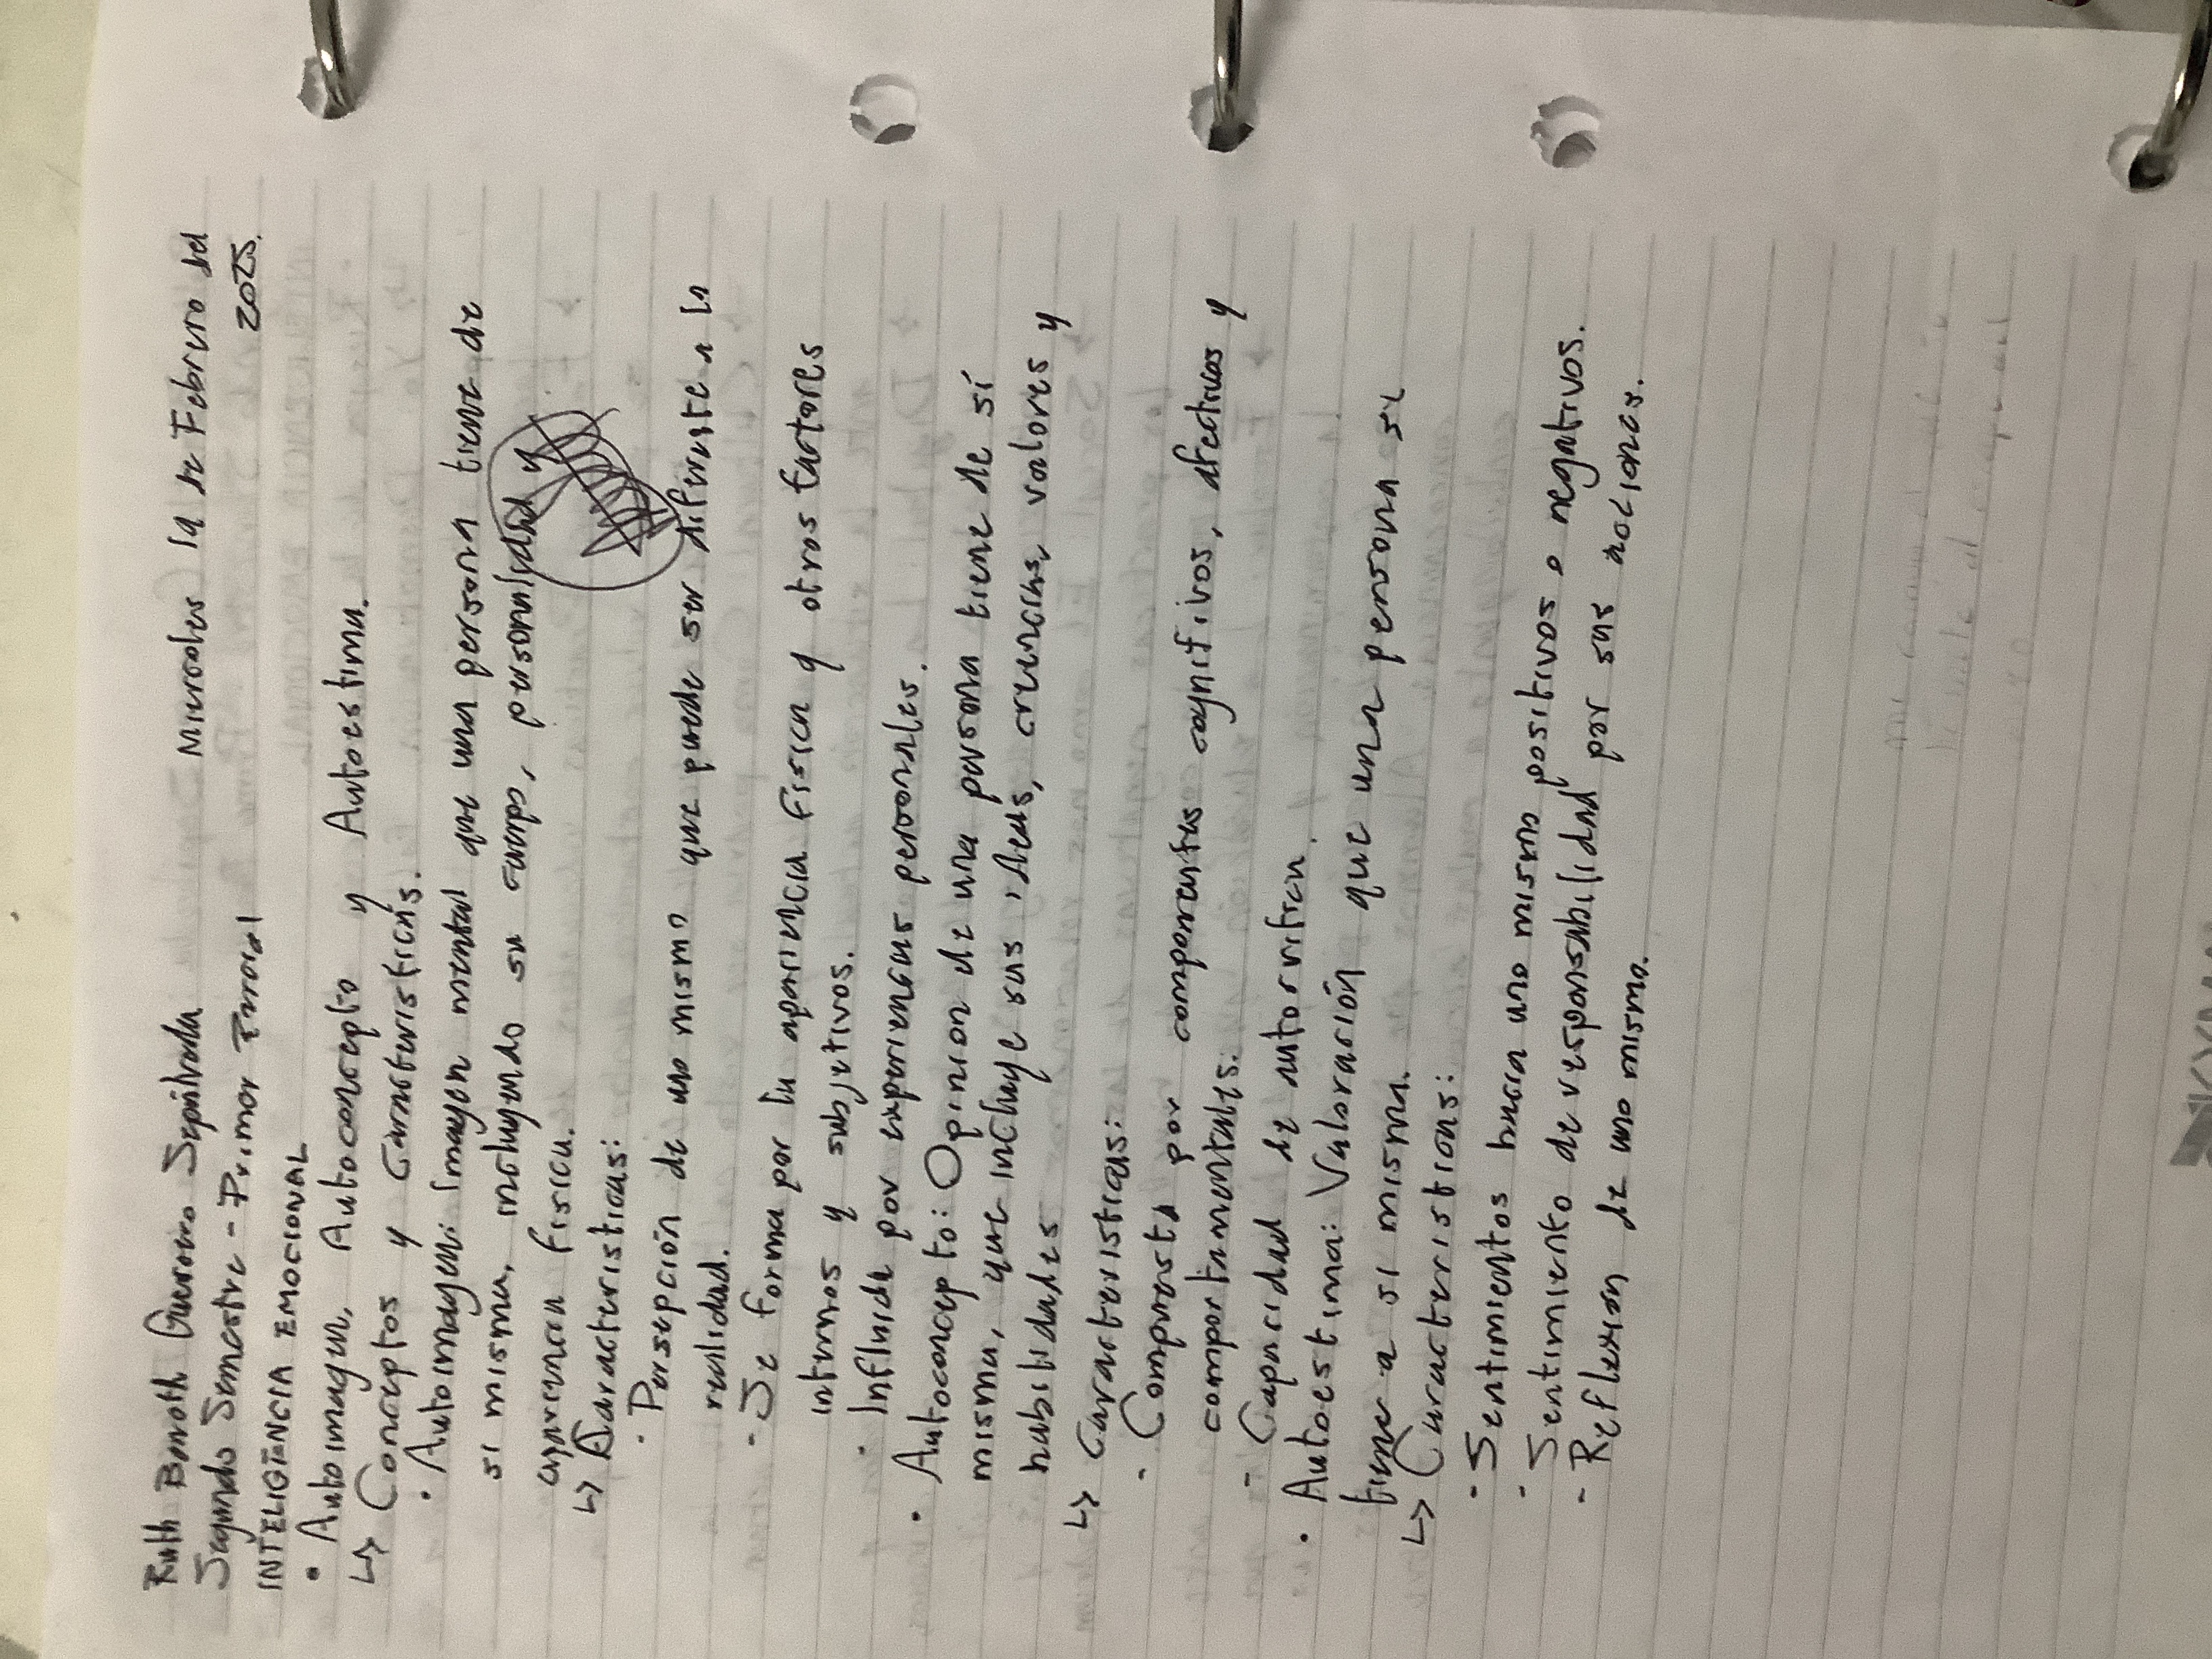 Ruth Banoth Guerrero Sepúlveda Miercoles 19 de Febrero del
Segundo Semestre - Primer Parcial 2025.
INTELIGENCIA EMOCIONAL
• Autoimagen, Autoconcepto y Autoestima.
↳ Conceptos y Características.
• Autoimagen: Imagen mental que una persona tiene de
si misma, incluyendo su cuerpo, personalidad y
apariencia física.
↳ Caracteristicas:
- Persepción de uno mismo que puede ser diferente a la
realidad.
- Se forma por la apariencia física y otros factores
internos y subjetivos.
- Influida por experiencias personales.
• Autoconcepto: Opinion de una persona tiene de sí
misma, que incluye sus ideas, creencias, valores y
habilidades
↳ Caracteristicas:
- Compuesta por componentes cognitivos, afectivos y
comportamentales.
- Capacidad de autocritica.
• Autoestima: Valoración que una persona se
tiene a si misma.
↳ Caracteristicas:
- Sentimientos hacia uno mismo positivos o negativos.
- Sentimiento de responsabilidad por sus acciones.
- Reflexión de uno mismo.